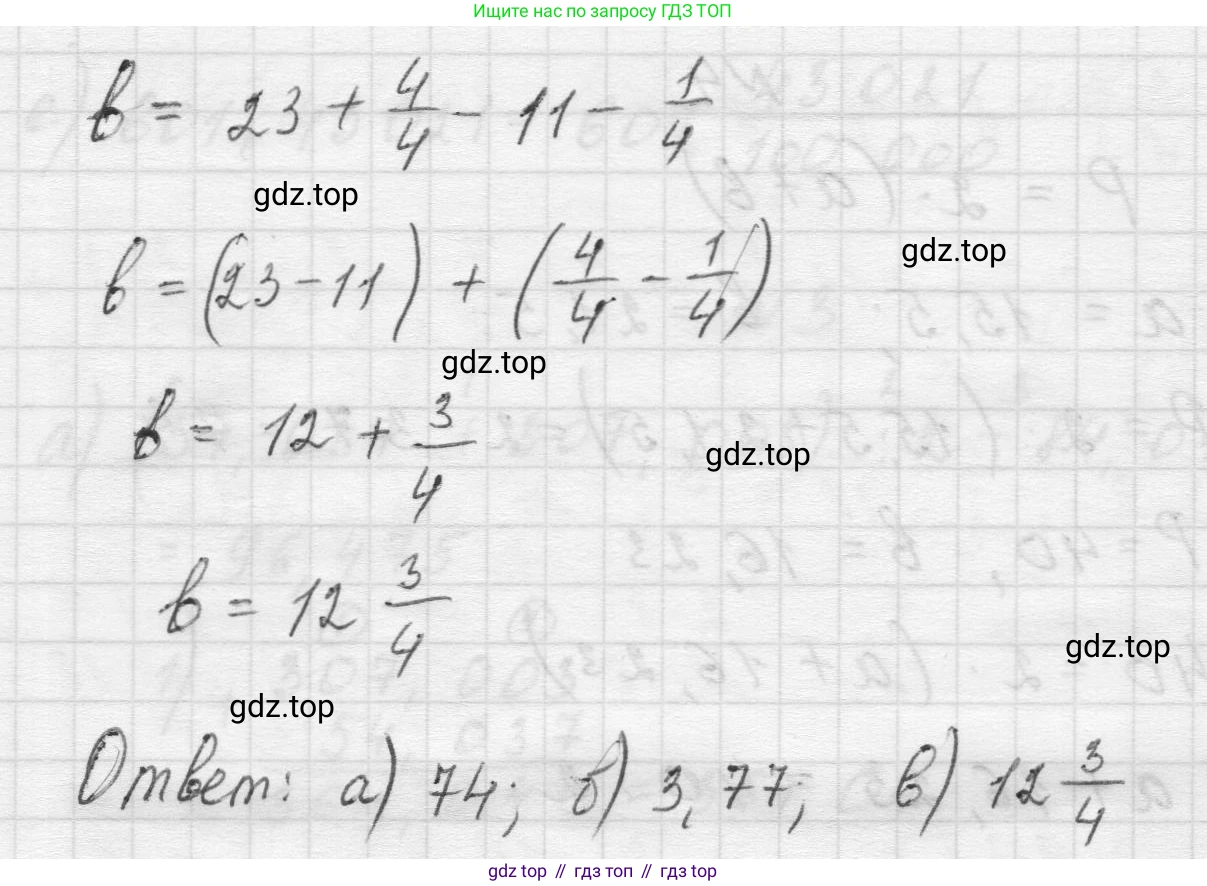 Ищите нас по запросу ГДЗ ТОП
в = 23 + 4/4 - 11 - 1/4
gdz.top
gdz.top
в = (23 - 11) + (4/4 - 1/4)
gdz.top
в = 12 + 3/4
gdz.top
в = 12 3/4
gdz.top
gdz.top
Ответ: а) 74; б) 3,77; в) 12 3/4
gdz.top // гдз топ // gdz top